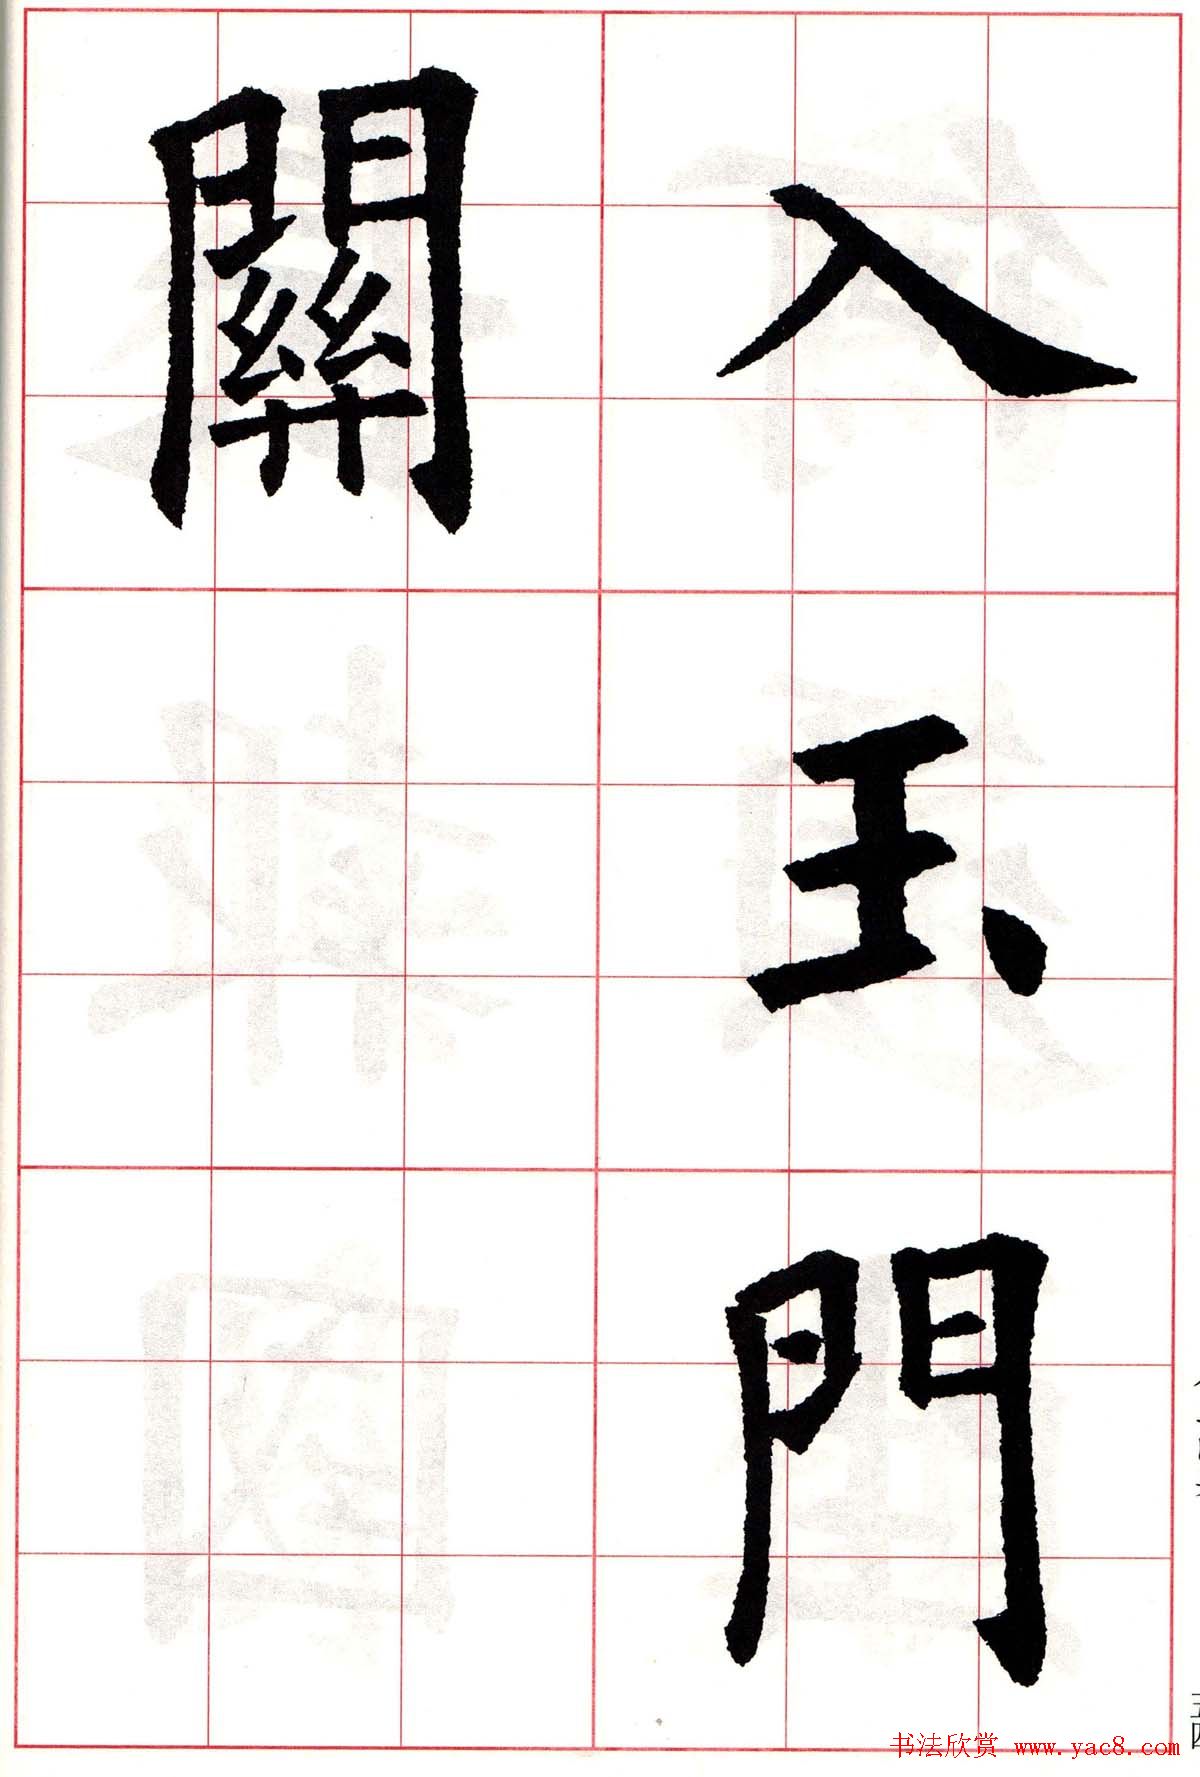 入玉門
關
五四
书法欣赏 www.yac8.com